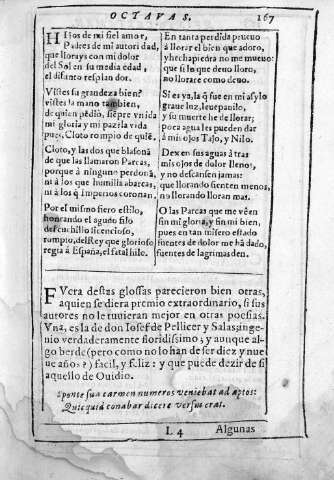 OCTAVAS. 167
HIjos de mi fiel amor,
Padres de mi autoridad,
que llorays con mi dolor
del Sol en su media edad,
el difunto resplandor.
Vistes su grandeza bien?
vistes la mano tambien,
de quien pẽdio, siẽpre vnida
mi gloria y mi paz, la vida
pues, Cloto rompio de quiẽ.
Cloto, y las dos que blasonã
de que las llamaron Parcas,
porque à ninguno perdonã,
ni à los que humilla abarcas,
ni à los q̃ Imperios coronan.
Por el mismo fiero estilo,
honrando el agudo filo
del cuchillo licencioso,
rompio, del Rey que glorioso
regia à España, el fatal hilo.
En tanta perdida prueuo
à llorar el bien que adoro,
y hecha piedra no me mueuo:
que si lo que deuo lloro,
no llorare como deuo.
Si es ya, la q̃ fue en mi asylo
graue luz, leue pauilo,
y su muerte he de llorar;
poca agua les pueden dar
à mis ojos Tajo, y Nilo.
Dex en sus aguas à tras
mis ojos de dolor llenos,
y no descansen jamas:
que llorando sienten menos,
no llorando lloran mas.
O las Parcas que me vẽen
sin mi gloria, y sin mi bien,
pues en tan misero estado
fuentes de dolor me hã dado,
fuentes de lagrimas den.
FVera destas glossas parecieron bien otras,
a quien se diera premio extraordinario, si sus
autores no le tuuieran mejor en otras poesias.
Vna, es la de don Iosef de Pellicer y Salas, inge-
nio verdaderamente floridissimo; y aunque al-
go berde (pero como no lo han de ser diez y nue
ue años?) facil, y feliz: y que puede dezir de si
aquello de Ouidio.
Sponte sua carmen numeros veniebat ad aptos:
Quicquid conabar dicere versus erat.
L 4 Algunas